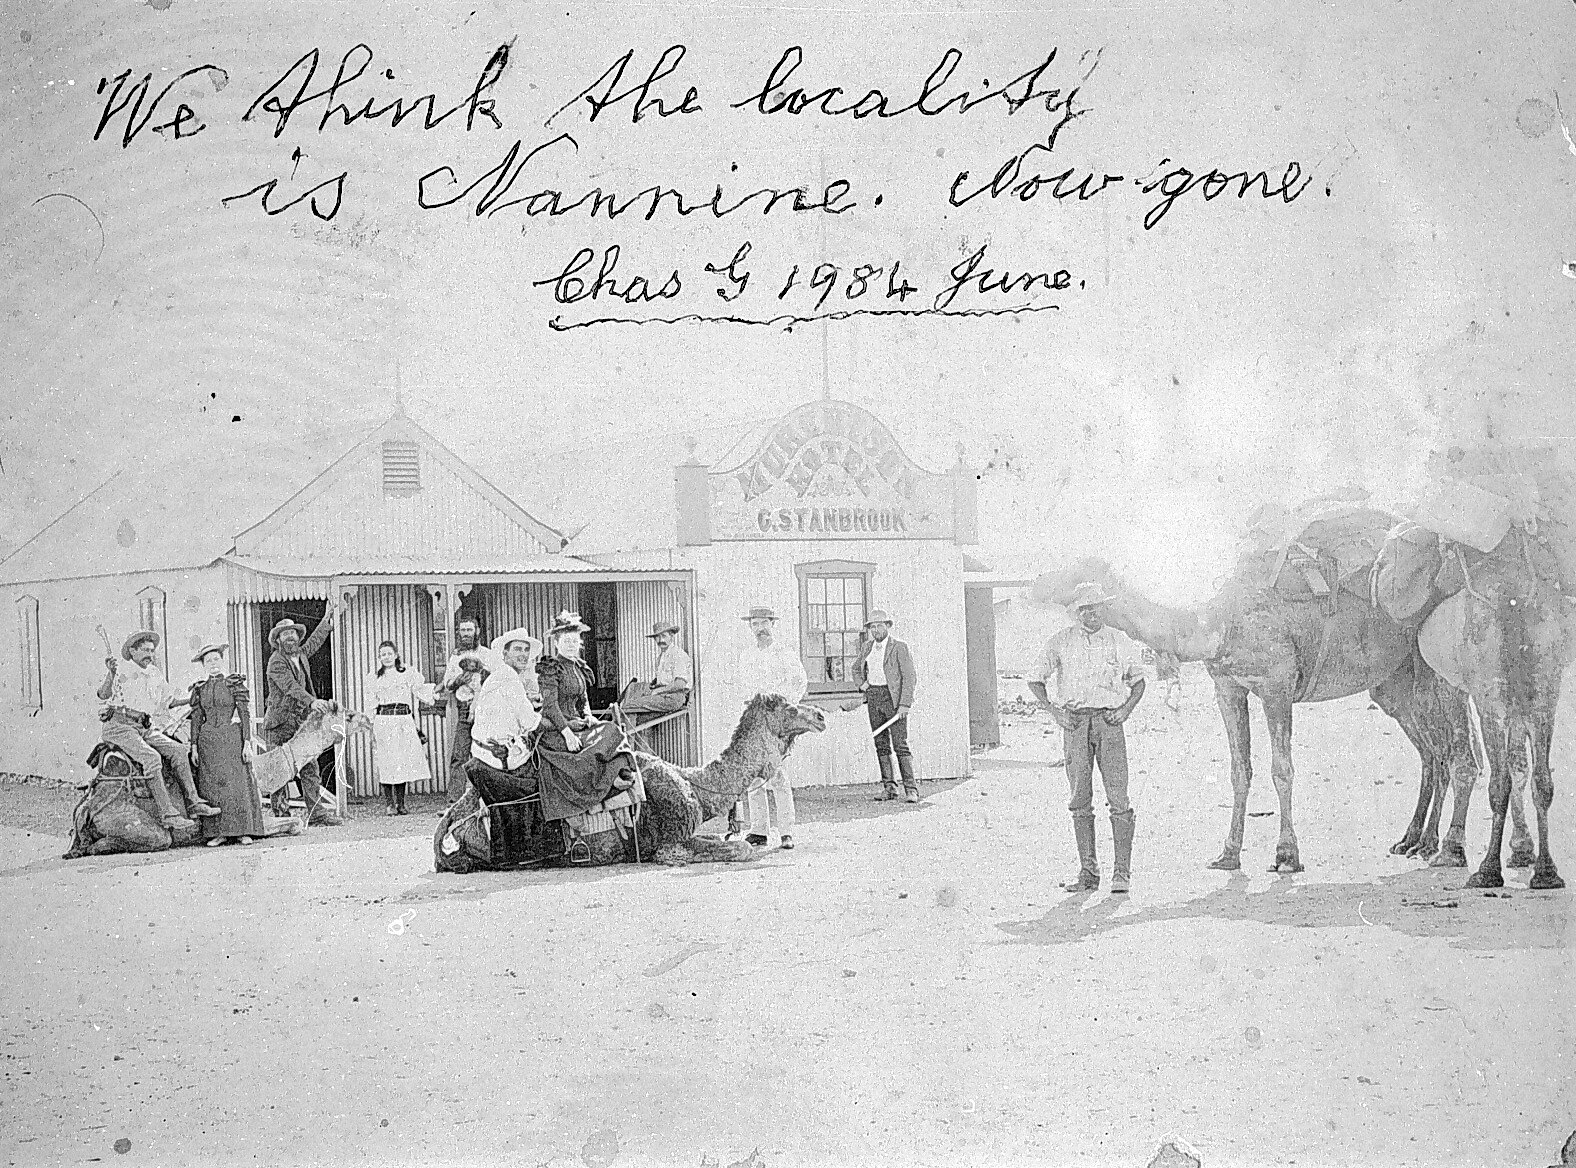 We think the locality
is Nannine. Now gone.
Chas G 1984 June.
MURCHISON
HOTEL
C. STANBROOK